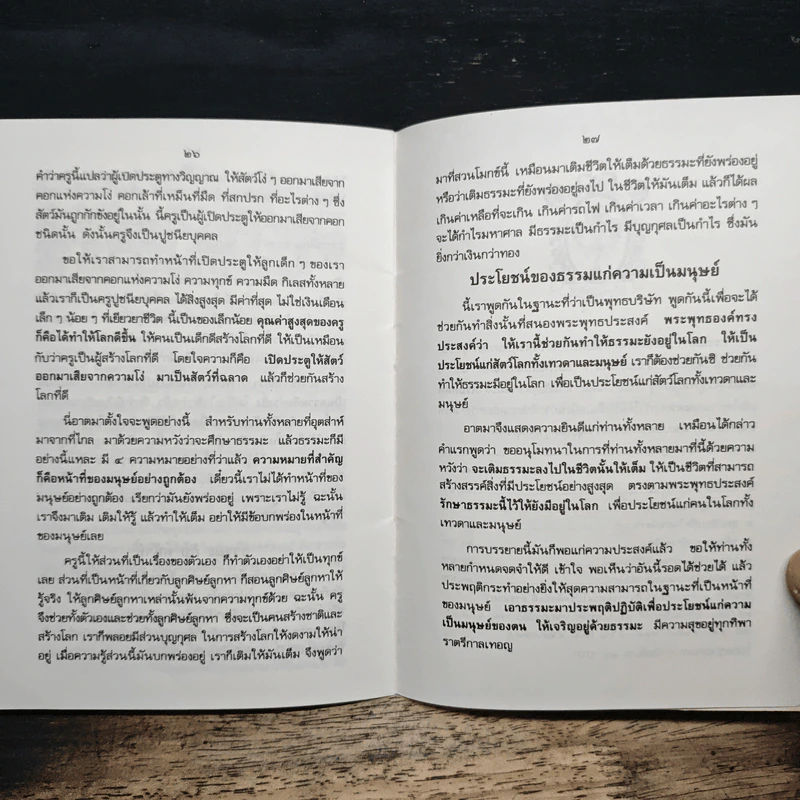 ๒๖
คำว่าครูนี้แปลว่าผู้เปิดประตูทางวิญญาณ ให้สัตว์โง่ ๆ ออกมาเสียจาก
คอกแห่งความโง่ คอกเล้าที่เหม็นที่มืด ที่สกปรก ที่อะไรต่าง ๆ ซึ่ง
สัตว์มันถูกกักขังอยู่ในนั้น นี้ครูเป็นผู้เปิดประตูให้ออกมาเสียจากคอก
ชนิดนั้น ดังนั้นครูจึงเป็นปูชนียบุคคล
ขอให้เราสามารถทำหน้าที่เปิดประตูให้ลูกเด็ก ๆ ของเรา
ออกมาเสียจากคอกแห่งความโง่ ความทุกข์ ความมืด กิเลสทั้งหลาย
แล้วเราก็เป็นครูปูชนียบุคคล ได้สิ่งสูงสุด มีค่าที่สุด ไม่ใช่เงินเดือน
เล็ก ๆ น้อย ๆ ที่เยียวยาชีวิต นี้เป็นของเล็กน้อย คุณค่าสูงสุดของครู
ก็คือได้ทำให้โลกดีขึ้น ให้คนเป็นเด็กดีสร้างโลกที่ดี ให้เป็นเหมือน
กับว่าครูเป็นผู้สร้างโลกที่ดี โดยใจความก็คือ เปิดประตูให้สัตว์
ออกมาเสียจากความโง่ มาเป็นสัตว์ที่ฉลาด แล้วก็ช่วยกันสร้าง
โลกที่ดี
นี่อาตมาตั้งใจจะพูดอย่างนี้ สำหรับท่านทั้งหลายที่อุตส่าห์
มาจากที่ไกล มาด้วยความหวังว่าจะศึกษาธรรมะ แล้วธรรมะก็มี
อย่างนี้แหละ มี ๔ ความหมายอย่างที่ว่าแล้ว ความหมายที่สำคัญ
ก็คือหน้าที่ของมนุษย์อย่างถูกต้อง เดี๋ยวนี้เราไม่ได้ทำหน้าที่ของ
มนุษย์อย่างถูกต้อง เรียกว่ามันยังพร่องอยู่ เพราะเราไม่รู้ ฉะนั้น
เราจึงมาเติม เติมให้รู้ แล้วทำให้เต็ม อย่าให้มีข้อบกพร่องในหน้าที่
ของมนุษย์เลย
ครูนี้ให้ส่วนที่เป็นเรื่องของตัวเอง ก็ทำตัวเองอย่าให้เป็นทุกข์
เลย ส่วนที่เป็นหน้าที่เกี่ยวกับลูกศิษย์ลูกหา ก็สอนลูกศิษย์ลูกหาให้
รู้จริง ให้ลูกศิษย์ลูกหาเหล่านั้นพ้นจากความทุกข์ด้วย ฉะนั้น ครู
จึงช่วยทั้งตัวเองและช่วยทั้งลูกศิษย์ลูกหา ซึ่งจะเป็นคนสร้างชาติและ
สร้างโลก เราก็พลอยมีส่วนบุญกุศล ในการสร้างโลกให้งดงามให้น่า
อยู่ เมื่อความรู้ส่วนนี้มันบกพร่องอยู่ เราก็เติมให้มันเต็ม จึงพูดว่า
๒๗
มาที่สวนโมกข์นี้ เหมือนมาเติมชีวิตให้เต็มด้วยธรรมะที่ยังพร่องอยู่
หรือว่าเติมธรรมะที่ยังพร่องอยู่ลงไป ในชีวิตให้มันเต็ม แล้วก็ได้ผล
เกินค่าเหลือที่จะเกิน เกินค่ารถไฟ เกินค่าเวลา เกินค่าอะไรต่าง ๆ
จะได้กำไรมหาศาล มีธรรมะเป็นกำไร มีบุญกุศลเป็นกำไร ซึ่งมัน
ยิ่งกว่าเงินกว่าทอง
ประโยชน์ของธรรมแก่ความเป็นมนุษย์
นี้เราพูดกันในฐานะที่ว่าเป็นพุทธบริษัท พูดกันนี้เพื่อจะได้
ช่วยกันทำสิ่งนั้นที่สนองพระพุทธประสงค์ พระพุทธองค์ทรง
ประสงค์ว่า ให้เรานี้ช่วยกันทำให้ธรรมะยังอยู่ในโลก ให้เป็น
ประโยชน์แก่สัตว์โลกทั้งเทวดาและมนุษย์ เราก็ต้องช่วยกันซิ ช่วยกัน
ทำให้ธรรมะมีอยู่ในโลก เพื่อเป็นประโยชน์แก่สัตว์โลกทั้งเทวดาและ
มนุษย์
อาตมาจึงแสดงความยินดีแก่ท่านทั้งหลาย เหมือนได้กล่าว
คำแรกพูดว่า ขออนุโมทนาในการที่ท่านทั้งหลายมาที่นี้ด้วยความ
หวังว่า จะเติมธรรมะลงไปในชีวิตนั้นให้เต็ม ให้เป็นชีวิตที่สามารถ
สร้างสรรค์สิ่งที่มีประโยชน์อย่างสูงสุด ตรงตามพระพุทธประสงค์
รักษาธรรมะนี้ไว้ให้ยังมีอยู่ในโลก เพื่อประโยชน์แก่คนในโลกทั้ง
เทวดาและมนุษย์
การบรรยายนี้มันก็พอแก่ความประสงค์แล้ว ขอให้ท่านทั้ง
หลายกำหนดจดจำให้ดี เข้าใจ พอเห็นว่าอันนี้รอดได้ช่วยได้ แล้ว
ประพฤติกระทำอย่างยิ่งให้สุดความสามารถในฐานะที่เป็นหน้าที่
ของมนุษย์ เอาธรรมะมาประพฤติปฏิบัติเพื่อประโยชน์แก่ความ
เป็นมนุษย์ของตน ให้เจริญอยู่ด้วยธรรมะ มีความสุขอยู่ทุกทิพา
ราตรีกาลเทอญ